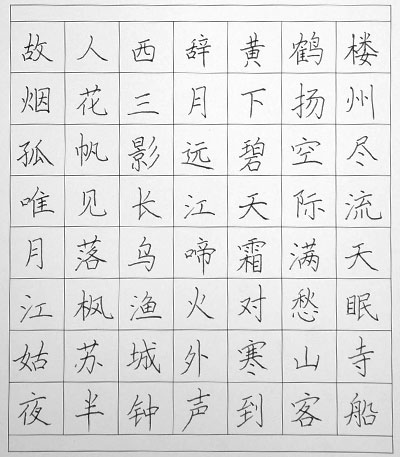 故人西辞黄鹤楼
烟花三月下扬州
孤帆影远碧空尽
唯见长江天际流
月落乌啼霜满天
江枫渔火对愁眠
姑苏城外寒山寺
夜半钟声到客船